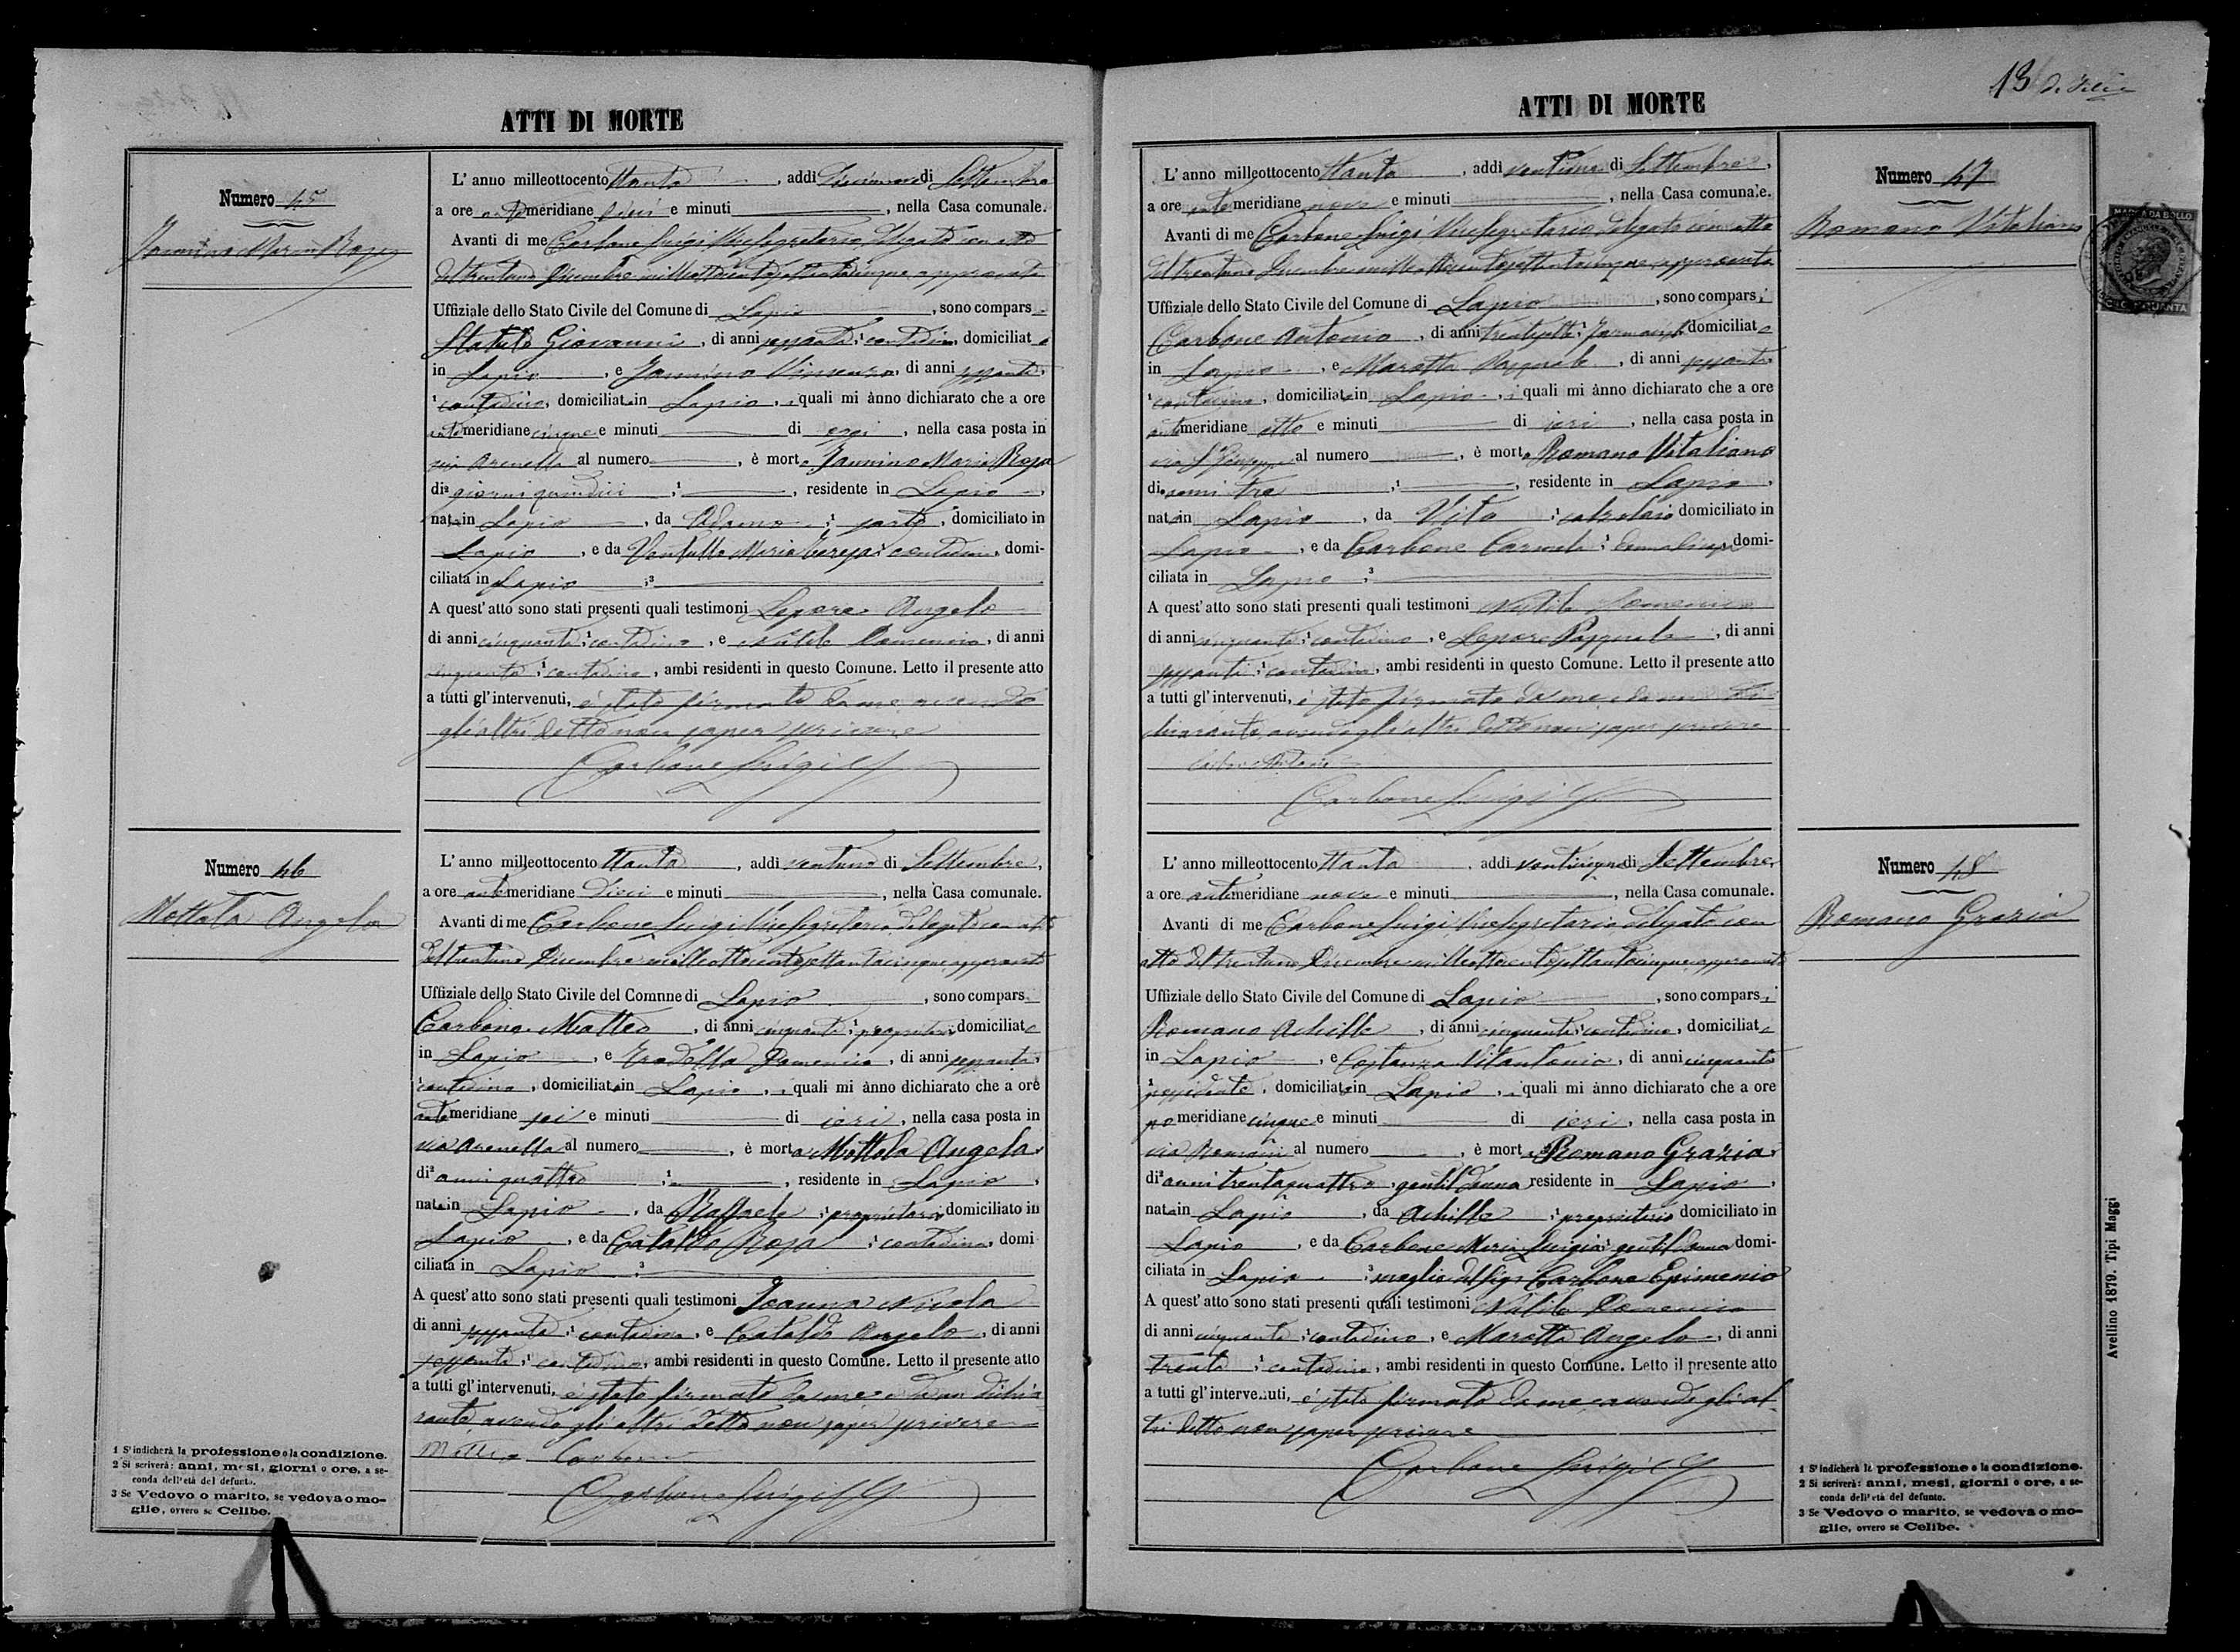 ATTI DI MORTE
Numero 45
Jannino Maria Rosa
L' anno milleottocento ttanta, addì di Settembre
a ore antemeridiane dieci e minuti, nella Casa comunale.
Avanti di me Carbone Luigi Vice Segretario delegato con atto
del trentuno Dicembre milleottocentosettantacinque approvato
Uffiziale dello Stato Civile del Comune di Lapio, sono compars
Statuto Giovanni, di anni sessanta, contadino, domiciliato
in Lapio, e Jannino Vincenzo, di anni sessanta,
contadino, domiciliat in Lapio, i quali mi ànno dichiarato che a ore
antemeridiane cinque e minuti di oggi, nella casa posta in
via Arenella al numero, è morta Jannino Maria Rosa
di giorni quindici, residente in Lapio,
nata in Lapio, da Adamo, sarto, domiciliato in
Lapio, e da Maria Teresa contadina, domi-
ciliata in Lapio
A quest' atto sono stati presenti quali testimoni Lepore Angelo
di anni cinquanta, contadino, e Natile Domenico, di anni
cinquanta, contadino, ambi residenti in questo Comune. Letto il presente atto
a tutti gl' intervenuti, è stato firmato da me avendo
gli altri detto non saper scrivere
Carbone Luigi
Numero 46
Mottola Angela
L' anno milleottocento ttanta, addì ventuno di Settembre,
a ore antemeridiane dieci e minuti, nella Casa comunale.
Avanti di me Carbone Luigi Vice Segretario delegato con atto
del trentuno Dicembre milleottocentosettantacinque approvato
Uffiziale dello Stato Civile del Comune di Lapio, sono compars
Carbone Matteo, di anni cinquanta, proprietario domiciliato
in Lapio, e Domenico, di anni sessanta,
contadino, domiciliato in Lapio, i quali mi ànno dichiarato che a ore
antemeridiane sei e minuti di ieri, nella casa posta in
via Arenella al numero, è morta Mottola Angela
di anni quattro, residente in Lapio,
nata in Lapio, da Raffaele, proprietario domiciliato in
Lapio, e da Cataldo Rosa, contadina, domi
ciliata in Lapio
A quest' atto sono stati presenti quali testimoni Ioanna Nicola
di anni sessanta, contadino, e Cataldo Angelo, di anni
sessanta, contadino, ambi residenti in questo Comune. Letto il presente atto
a tutti gl' intervenuti, è stato firmato da me e da un dichia
rante avendo gli altri detto non saper scrivere
Matteo Carbone
Carbone Luigi
1 S' indicherà la professione o la condizione.
2 Si scriverà: anni, mesi, giorni o ore, a se-
conda dell' età del defunto.
3 Se Vedovo o marito, se vedova o mo-
glie, ovvero se Celibe.
13
ATTI DI MORTE
Numero 47
Romano Vitaliano
MARCA DA BOLLO
L' anno milleottocento ttanta, addì di Settembre,
a ore antemeridiane nove e minuti, nella Casa comunale.
Avanti di me Carbone Luigi Vice Segretario delegato con atto
del trentuno Dicembre milleottocentosettantacinque approvato
Uffiziale dello Stato Civile del Comune di Lapio, sono comparsi
Carbone Antonio, di anni trentasette, domiciliato
in Lapio, e Marotta Pasquale, di anni sessanta
contadino, domiciliato in Lapio, i quali mi ànno dichiarato che a ore
antemeridiane otto e minuti di ieri, nella casa posta in
via S. Giuseppe al numero, è morto Romano Vitaliano
di anni tre, residente in Lapio,
nato in Lapio, da Vito, calzolaio domiciliato in
Lapio, e da Carbone Carmela, domi-
ciliata in Lapio
A quest' atto sono stati presenti quali testimoni Natile Domenico
di anni cinquanta, contadino, e Lepore Pasquale, di anni
sessanta, contadino, ambi residenti in questo Comune. Letto il presente atto
a tutti gl' intervenuti, è stato firmato da me e da un di
chiarante, avendo gli altri detto non saper scrivere
Carbone Antonio
Carbone Luigi
Numero 48
Romano Grazia
L' anno milleottocento ttanta, addì venticinque di Settembre,
a ore antemeridiane nove e minuti, nella Casa comunale.
Avanti di me Carbone Luigi Vice Segretario delegato con
atto del trentuno Dicembre milleottocentosettantacinque approvato
Uffiziale dello Stato Civile del Comune di Lapio, sono comparsi
Romano Achille, di anni cinquanta, contadino, domiciliato
in Lapio, e Costanza Vitantonio, di anni cinquanta
possidente, domiciliato in Lapio, i quali mi ànno dichiarato che a ore
pomeridiane cinque e minuti di ieri, nella casa posta in
via Romani al numero, è morta Romano Grazia
di anni trentaquattro, gentildonna residente in Lapio,
nata in Lapio, da Achille, proprietario domiciliato in
Lapio, e da Carbone Maria Luigia, gentildonna domi-
ciliata in Lapio, moglie del Sigr Carbone Epimenio
A quest' atto sono stati presenti quali testimoni Natile Domenico
di anni cinquanta, contadino, e Marotta Angelo, di anni
trenta, contadino, ambi residenti in questo Comune. Letto il presente atto
a tutti gl' intervenuti, è stato firmato da me avendo gli al
tri detto non saper scrivere
Carbone Luigi
1 S' indicherà la professione o la condizione.
2 Si scriverà: anni, mesi, giorni o ore, a se-
conda dell' età del defunto.
3 Se Vedovo o marito, se vedova o mo-
glie, ovvero se Celibe.
Avellino 1879. Tipi Maggi